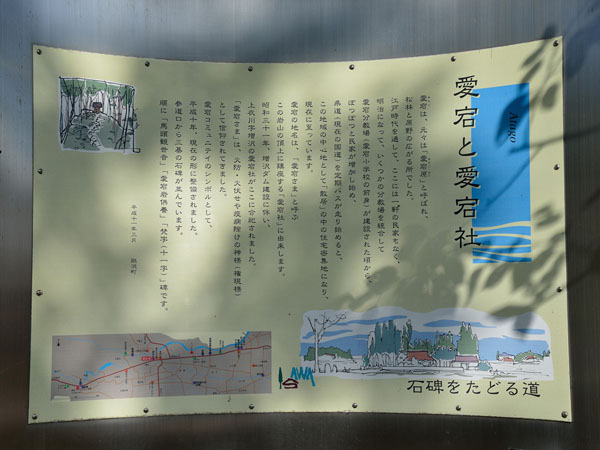 愛宕と愛宕社
Atago
愛宕は、元々は「愛宕原」と呼ばれ、
松林と原野の広がる所でした。
江戸時代を通して、ここには一軒の民家もなく、
明治になって、いくつかの分教場を統合して
愛宕分教場(愛宕小学校の前身)が建設された頃から、
ぽつぽつと民家が増加し始め、
県道(現在の国道)を定期バスが走り始めると、
この地域の中心地として「散居」の中の住宅密集地になり、
現在に至っています。
愛宕の地名は、「愛宕さま」と呼ぶ
この岩山の頂上に鎮座する「愛宕社」に由来します。
昭和三十一年、増沢ダム建設に伴い、
上衣川字増沢の愛宕社がここに合祀されました。
「愛宕さま」は、火防・火伏せや疫病除けの神様(権現様)
として信仰されてきました。
愛宕コミュニティのシンボルとして、
平成十年、現在の形に整備されました。
参道口から三基の石碑が並んでいます。
順に「馬頭観世音」「愛宕岩供養」「梵字(十一字)」碑です。
平成十一年三月 胆沢町
石碑をたどる道